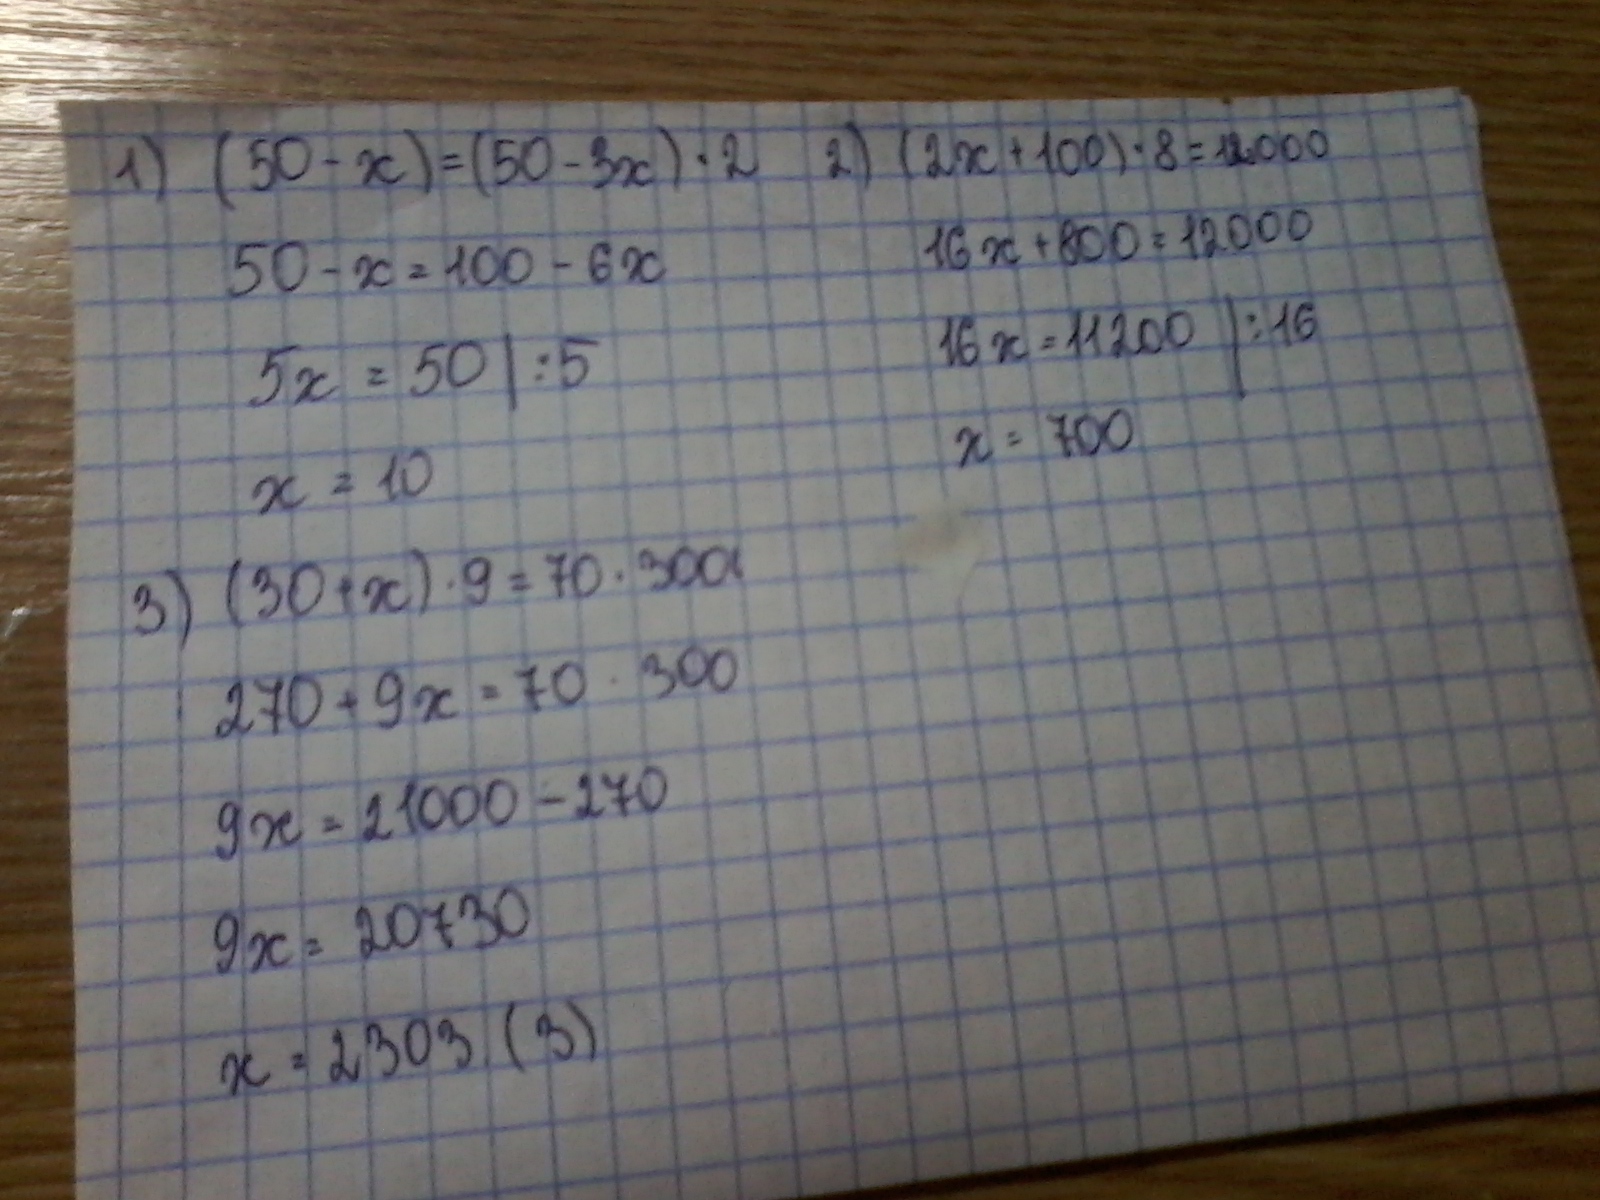 1) (50 - x) = (50 - 3x) · 2
50 - x = 100 - 6x
5x = 50 | : 5
x = 10
2) (2x + 100) · 8 = 12000
16x + 800 = 12000
16x = 11200 | : 16
x = 700
3) (30 + x) · 9 = 70 · 300
270 + 9x = 70 · 300
9x = 21000 - 270
9x = 20730
x = 2303 (3)